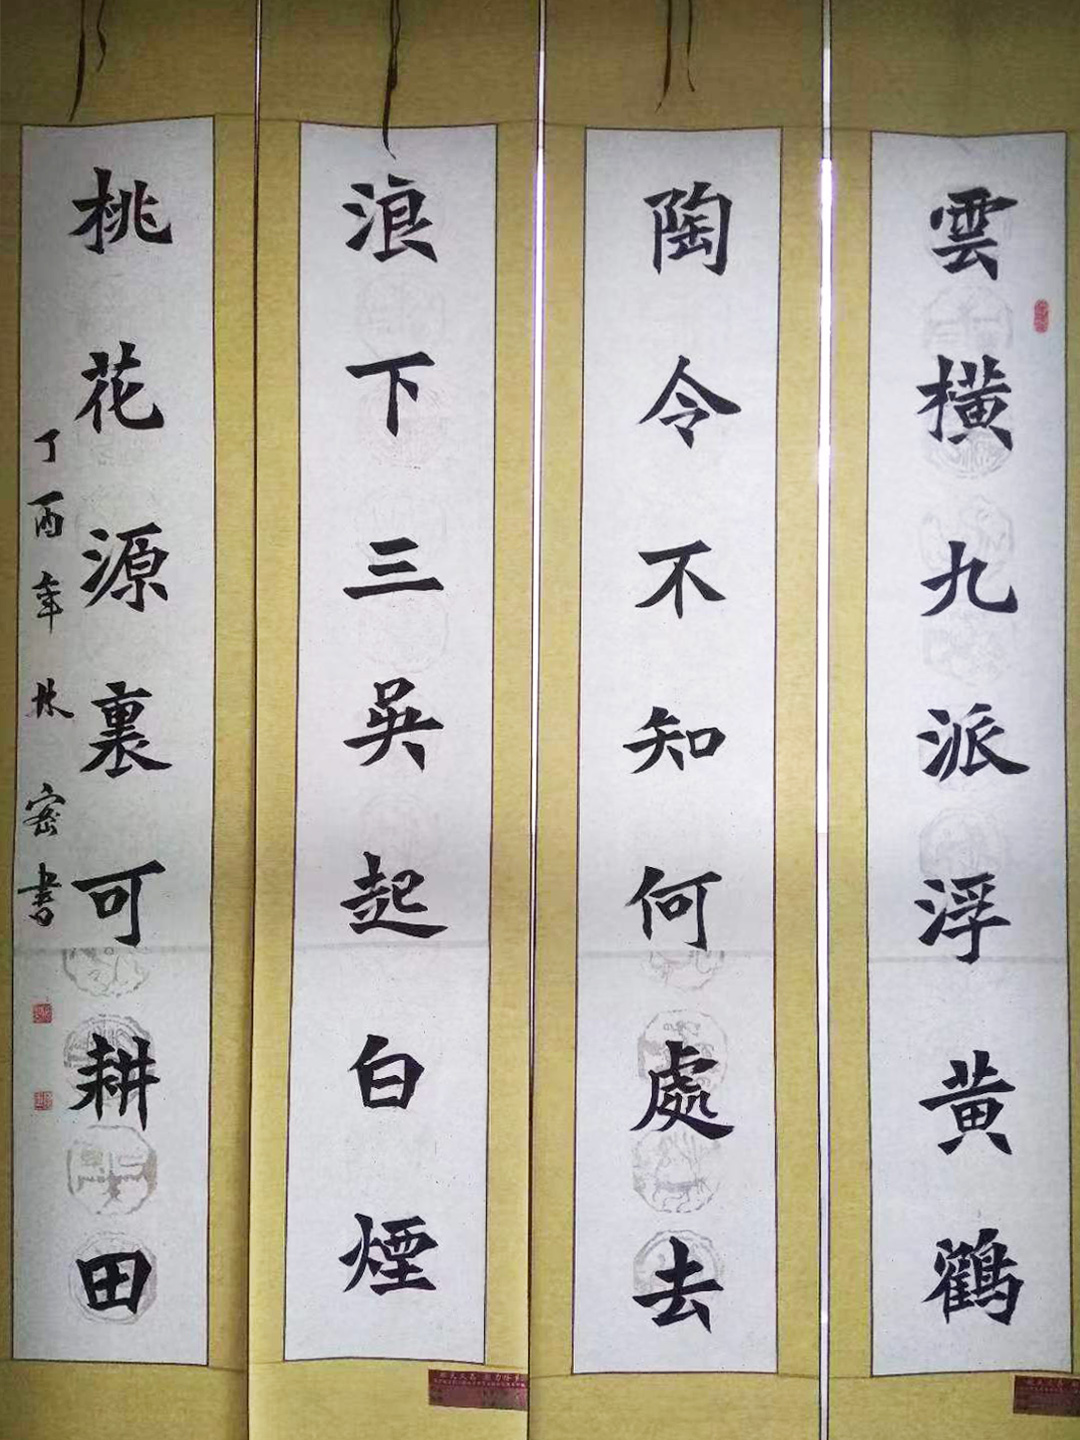 雲橫九派浮黃鶴
陶令不知何處去
浪下三吳起白煙
桃花源裏可耕田
丁酉年 林密書